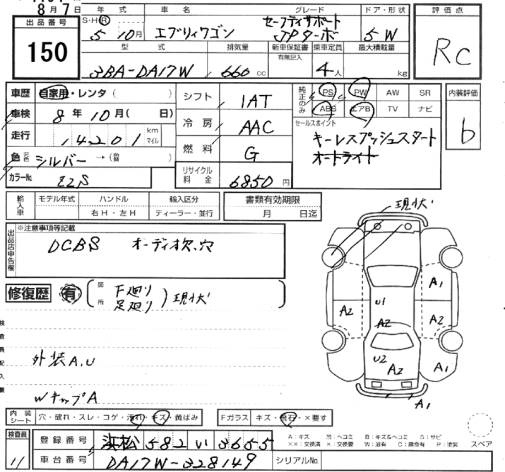 8月7日
出品番号
150
年式
S・H・R 5年10月
車名
エブリィワゴン
グレード
セーフティサポート
JPターボ
ドア・形状
5W
評価点
RC
型式
3BA-DA17W
排気量
660cc
新車保証書
有無記入
乗車定員
4人
最大積載量
kg
車歴 自家用・レンタ( )
車検 8年10月( 日)
走行 14201 km マイル
色 シルバー→(替 )
カラーNo. Z2S
シフト 1AT
冷房 AAC
燃料 G
リサイクル料金 6850円
純正のみ PS PW AW SR
ABS エアB TV ナビ
セールスポイント
キーレスプッシュスタート
オートライト
内装評価
b
輸入車
モデル年式
ハンドル
右H・左H
輸入区分
ディーラー・並行
書類有効期限
月 日迄
出品店申告欄
※注意事項等記載
DCBS オーディオ欠.穴
修復歴 有
箇所
下廻り
足廻り
現状
外装A.U
WキップA
現状
A1
A2
U1
A2
A2
A1
U2
A2
A1
A1
内装シート 穴・破れ・スレ・コゲ・汚れ・キズ・黄ばみ
Fガラス キズ・飛石・×要す
スペア
検査員
11
登録番号 浜松582い3655
車台番号 DA17W-328149
シリアルNo.
A:キズ